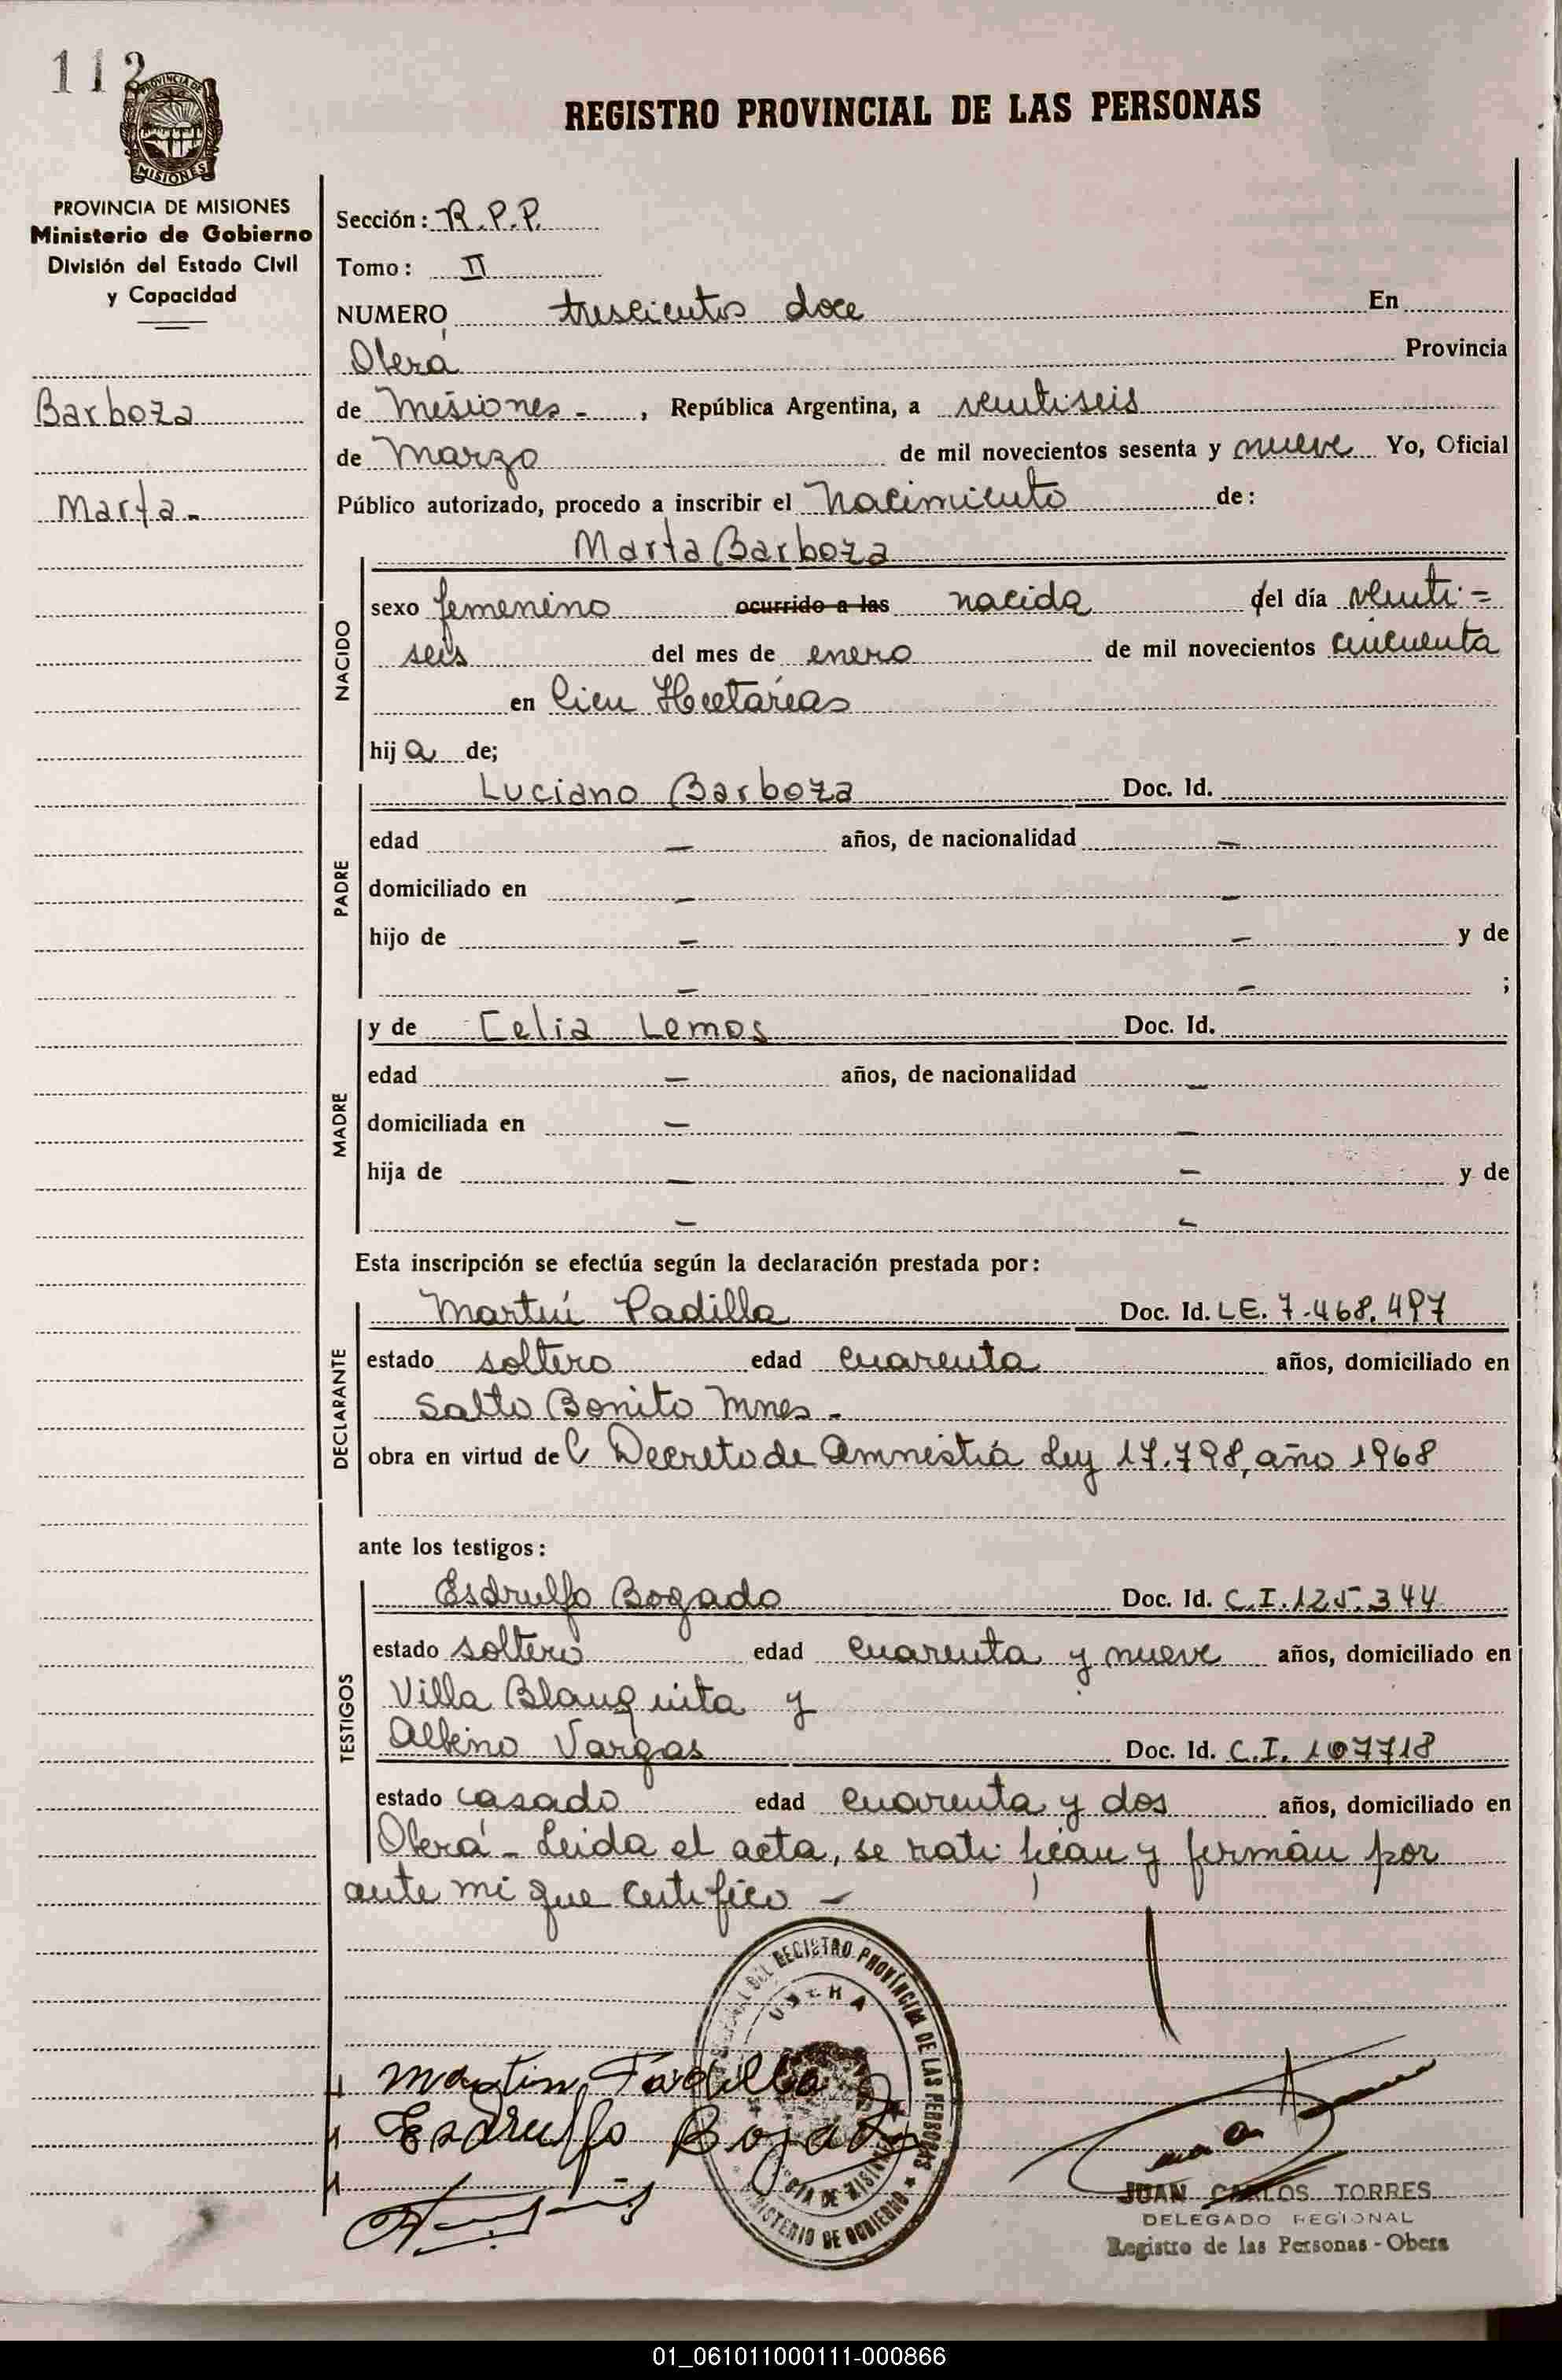 112
PROVINCIA DE
MISIONES
REGISTRO PROVINCIAL DE LAS PERSONAS
PROVINCIA DE MISIONES
Ministerio de Gobierno
División del Estado Civil
y Capacidad
Barboza
Marta.-
Sección: R.P.P.
Tomo: II
NUMERO trescientos doce En
Oberá Provincia
de Misiones.-, República Argentina, a veintiseis
de Marzo de mil novecientos sesenta y nueve Yo, Oficial
Público autorizado, procedo a inscribir el Nacimiento de:
Marta Barboza
NACIDO
sexo femenino ocurrido a las nacida del día veinti=
seis del mes de enero de mil novecientos cincuenta
en Cien Hectáreas
hija de;
PADRE
Luciano Barboza Doc. Id.
edad — años, de nacionalidad —
domiciliado en — —
hijo de — — y de
— — ;
MADRE
y de Celia Lemos Doc. Id.
edad — años, de nacionalidad —
domiciliada en — —
hija de — — y de
— —
Esta inscripción se efectúa según la declaración prestada por:
DECLARANTE
Martín Padilla Doc. Id. LE. 7.468.497
estado soltero edad cuarenta años, domiciliado en
Salto Bonito Mnes.-
obra en virtud del Decreto de Amnistía Ley 17.798, año 1968
ante los testigos:
TESTIGOS
Esdrulfo Bogado Doc. Id. C.I. 125.344
estado soltero edad cuarenta y nueve años, domiciliado en
Villa Blanquita y
Albino Vargas Doc. Id. C.I. 107718
estado casado edad cuarenta y dos años, domiciliado en
Oberá - Leida el acta, se ratifican y firman por
ante mi que certifico -
DEL REGISTRO PROVINCIAL DE LAS PERSONAS
OBERA
MINISTERIO DE GOBIERNO
Martin Padilla
Esdrulfo Bogado
JUAN CARLOS TORRES
DELEGADO REGIONAL
Registro de las Personas - Obera
01_061011000111-000866